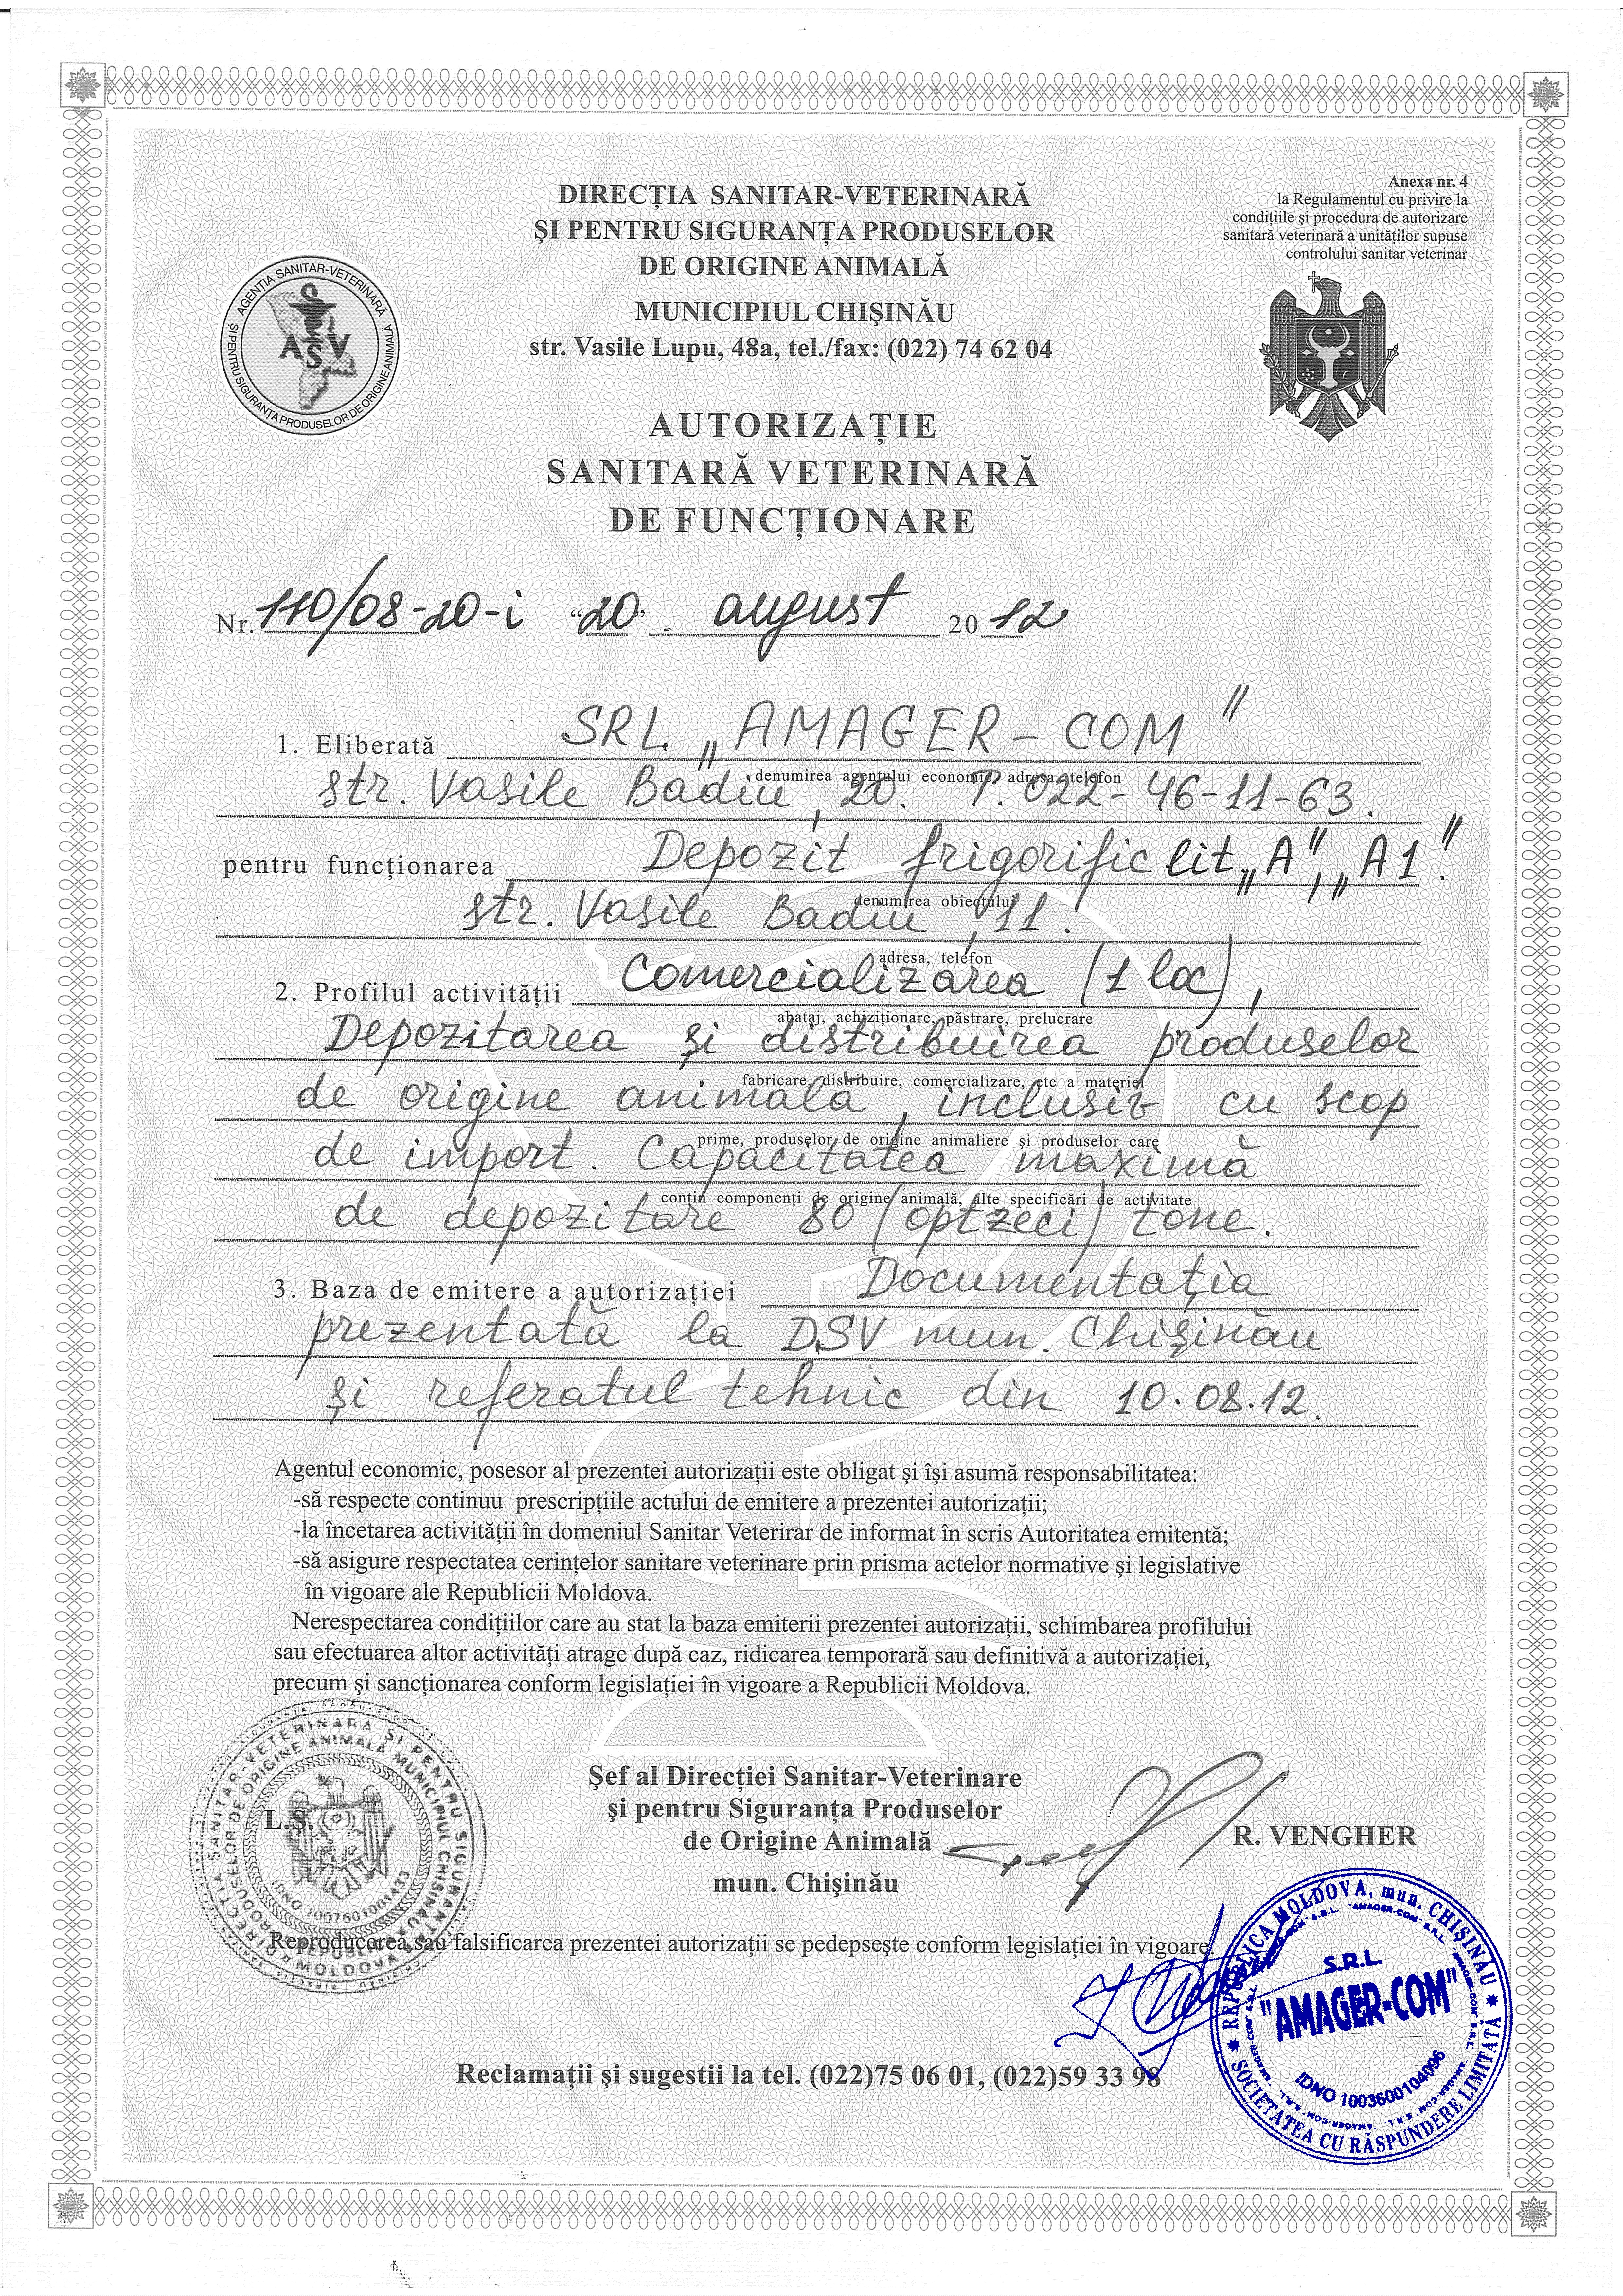 Anexa nr. 4
la Regulamentul cu privire la
condițiile și procedura de autorizare
sanitară veterinară a unităților supuse
controlului sanitar veterinar
DIRECȚIA SANITAR-VETERINARĂ
ȘI PENTRU SIGURANȚA PRODUSELOR
DE ORIGINE ANIMALĂ
MUNICIPIUL CHIȘINĂU
str. Vasile Lupu, 48a, tel./fax: (022) 74 62 04
AGENȚIA SANITAR-VETERINARĂ
ȘI PENTRU SIGURANȚA PRODUSELOR DE ORIGINE ANIMALĂ
ASV
AUTORIZAȚIE
SANITARĂ VETERINARĂ
DE FUNCȚIONARE
Nr. 110/08-20-i "20" august 2012
1. Eliberată SRL „AMAGER-COM"
denumirea agentului economic, adresa, telefon
str. Vasile Badiu, 20. T. 022-46-11-63.
pentru funcționarea Depozit frigorific lit „A", „A1".
denumirea obiectului
str. Vasile Badiu, 11.
adresa, telefon
2. Profilul activității Comercializarea (1 loc),
abataj, achiziționare, păstrare, prelucrare
Depozitarea și distribuirea produselor
fabricare, distribuire, comercializare, etc a materiei
de origine animală, inclusiv cu scop
prime, produselor de origine animaliere și produselor care
de import. Capacitatea maximă
conțin componenți de origine animală, alte specificări de activitate
de depozitare 80 (optzeci) tone.
3. Baza de emitere a autorizației Documentația
prezentată la DSV mun. Chișinău
și referatul tehnic din 10.08.12.
Agentul economic, posesor al prezentei autorizații este obligat și își asumă responsabilitatea:
-să respecte continuu prescripțiile actului de emitere a prezentei autorizații;
-la încetarea activității în domeniul Sanitar Veterirar de informat în scris Autoritatea emitentă;
-să asigure respectatea cerințelor sanitare veterinare prin prisma actelor normative și legislative
în vigoare ale Republicii Moldova.
Nerespectarea condițiilor care au stat la baza emiterii prezentei autorizații, schimbarea profilului
sau efectuarea altor activități atrage după caz, ridicarea temporară sau definitivă a autorizației,
precum și sancționarea conform legislației în vigoare a Republicii Moldova.
Șef al Direcției Sanitar-Veterinare
și pentru Siguranța Produselor
de Origine Animală
mun. Chișinău
R. VENGHER
L.Ș.
Reproducerea sau falsificarea prezentei autorizații se pedepsește conform legislației în vigoare.
REPUBLICA MOLDOVA, mun. CHIȘINĂU
S.R.L.
"AMAGER-COM"
IDNO 1003600104096
SOCIETATEA CU RĂSPUNDERE LIMITATĂ
Reclamații și sugestii la tel. (022)75 06 01, (022)59 33 98